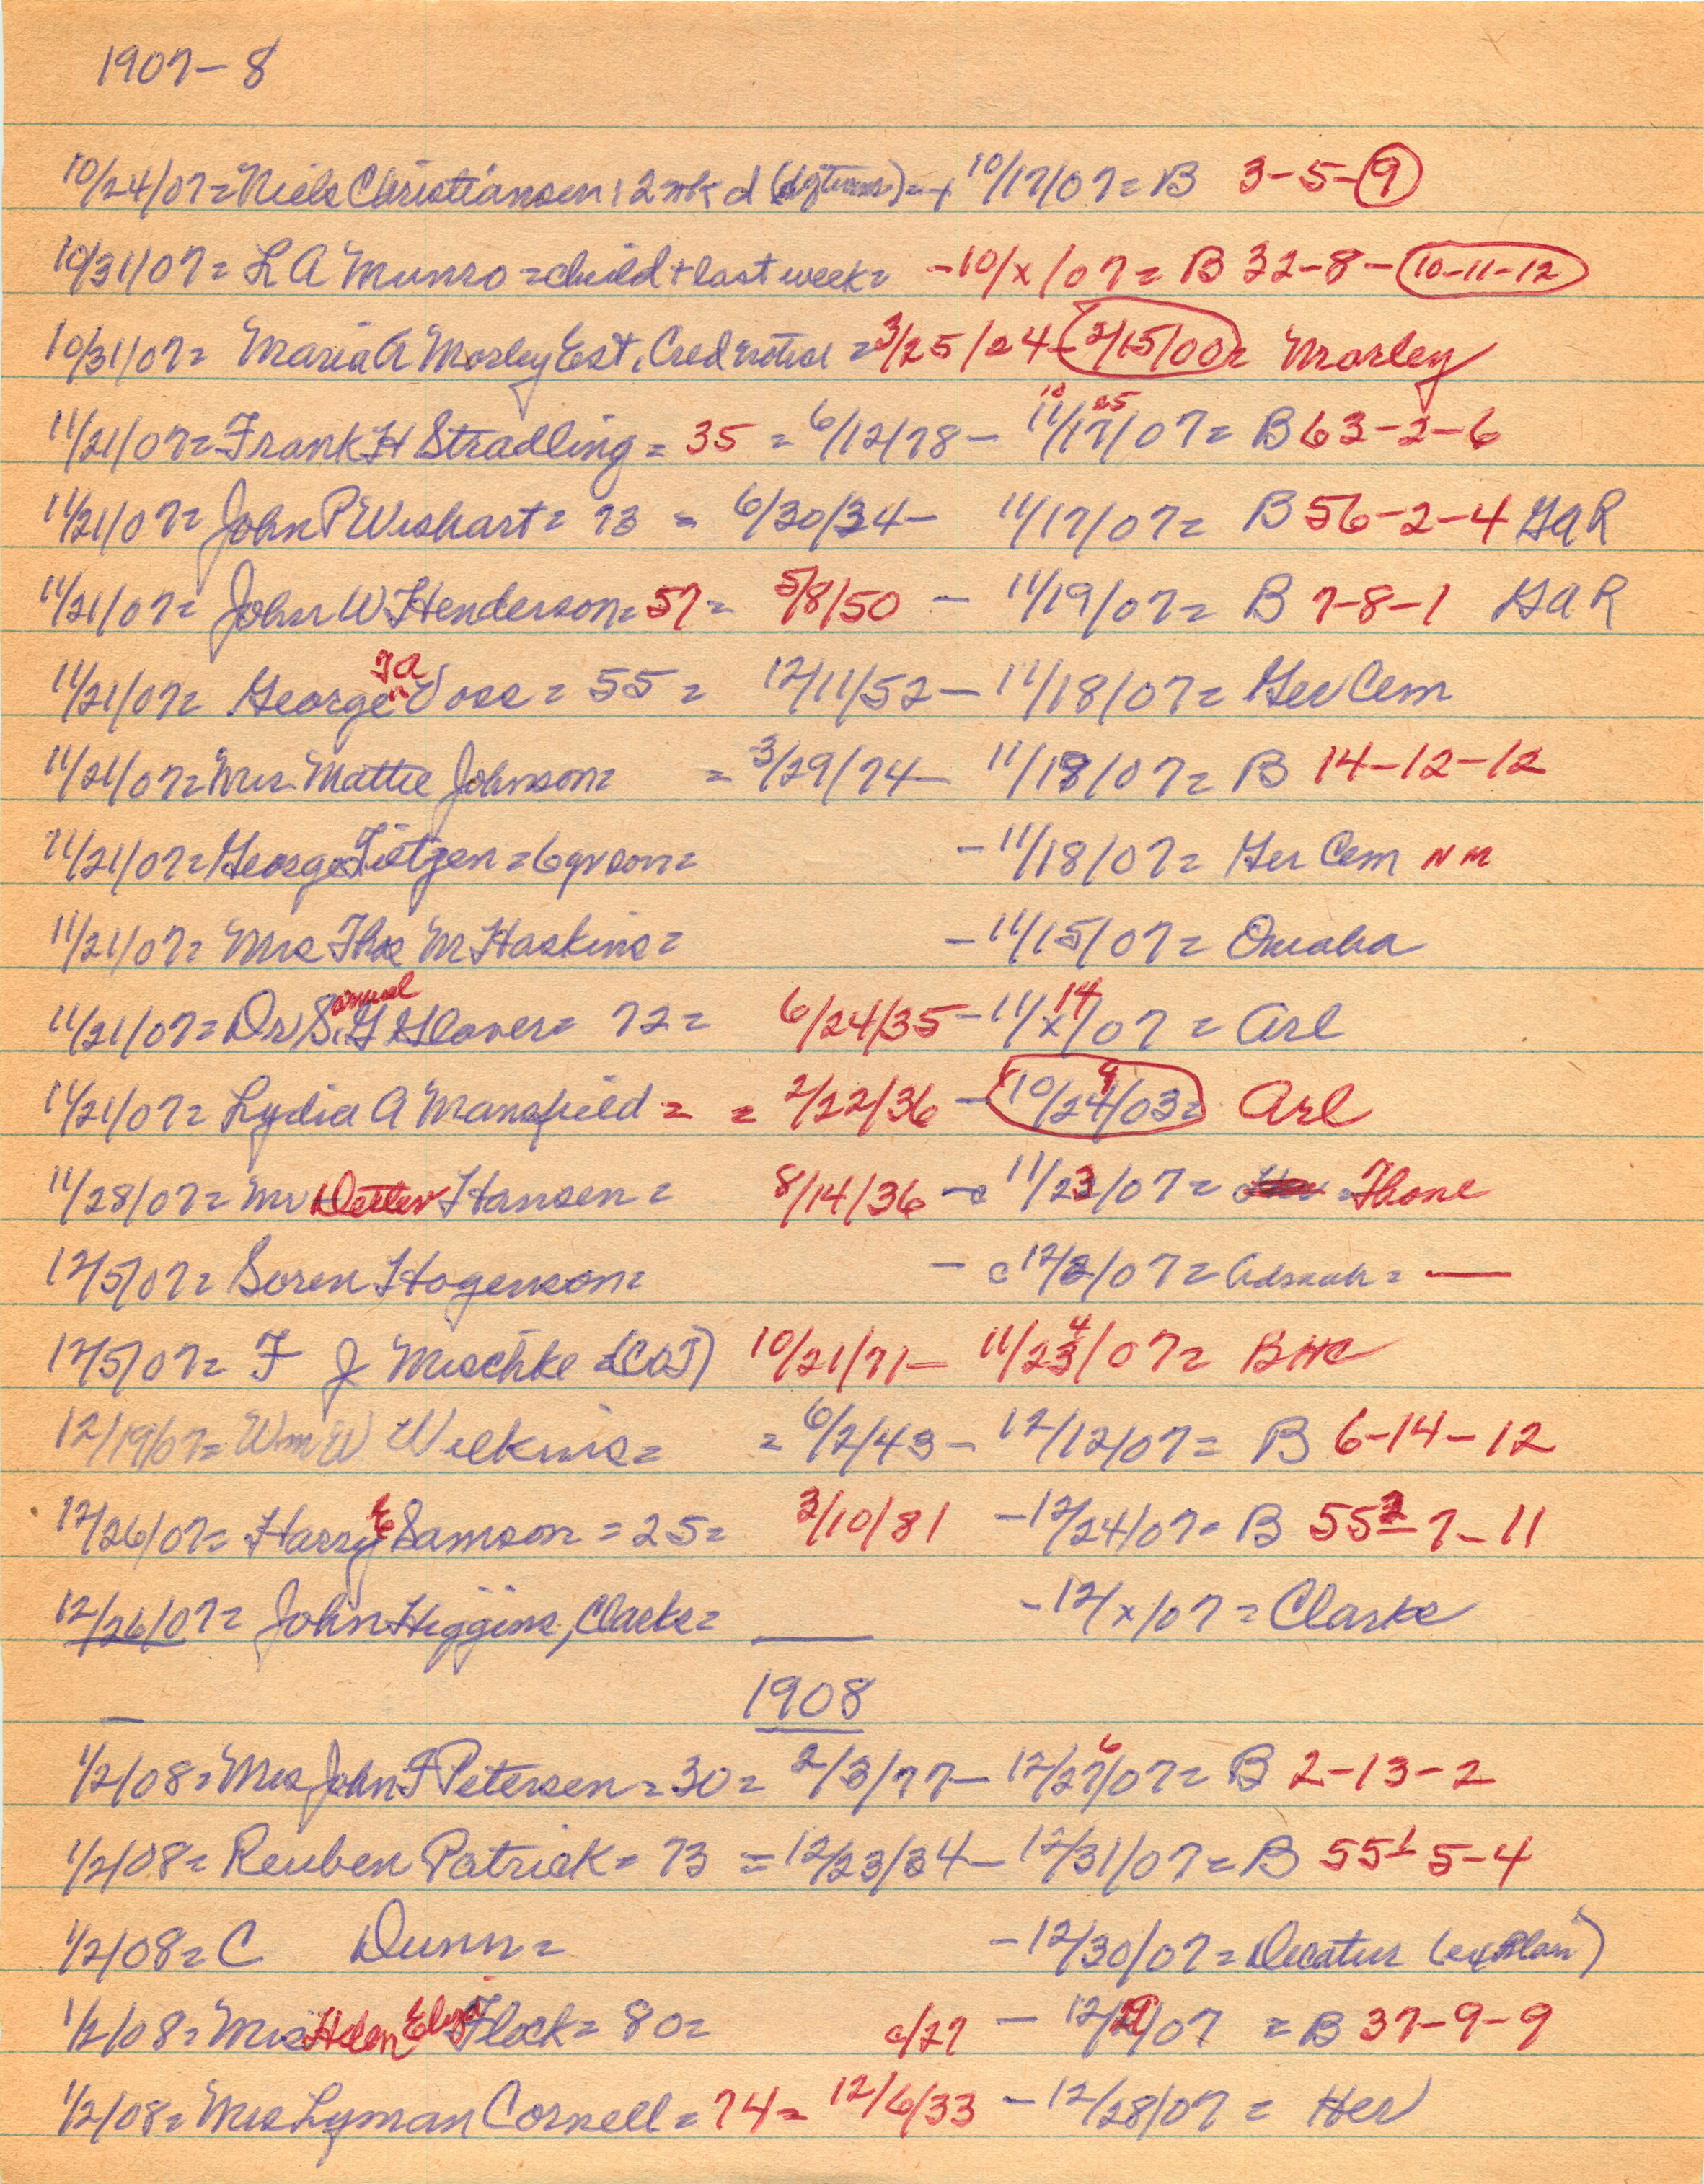 1907-8
10/24/07= Niels Christiansen 12 wk d = + 10/17/07= B 3-5-9
10/31/07= L A Munro = child + last week= -10/x/07= B 32-8-10-11-12
10/31/07= Maria A Morley Est, Cred notice = 3/25/24-2/15/00= Morley
11/21/07= Frank H Stradling = 35 = 6/12/78 - 11/17/07= B 63-2-6
11/21/07= John P Wishart = 73 = 6/30/34- 11/17/07= B 56-2-4 GAR
11/21/07= John W Henderson= 57= 5/8/50 - 11/19/07= B 7-8-1 GAR
11/21/07= George Voss = 55 = 12/11/52 - 11/18/07= Ger Cem
11/21/07= Mrs. Mattie Johnson= = 3/29/74- 11/18/07= B 14-12-12
11/21/07= George Tietzen = 6 yr son= -11/18/07= Ger Cem NM
11/21/07= Mrs Thos M Haskins= -11/15/07= Omaha
11/21/07= Dr Samuel G Glover= 72= 6/24/35 - 11/14/07 = Arl
11/21/07= Lydia A Mansfield = = 2/22/36 - 10/24/03= Arl
11/28/07= Mr Detlev Hansen= 8/14/36 - c 11/23/07= Thone
12/5/07= Soren Hogenson= - c 12/2/07=
12/5/07= F J Mischke = (COJ) 10/21/71- 11/24/07= BHC
12/19/07= Wm W Wilkins= = 6/2/43 - 12/12/07= B 6-14-12
12/26/07= Harry E Samson = 25= 3/10/81 -12/24/07= B 55 2-7-11
12/26/07= John Higgins, Clarks= -12/x/07 = Clarks
1908
1/2/08= Mrs John F Petersen = 30= 2/3/77- 12/27/07= B 2-13-2
1/2/08= Reuben Patrick= 73 = 12/23/34- 12/31/07= B 55 1 5-4
1/2/08= C Dunn= -12/30/07= Decatur (ex Blair)
1/2/08= Mrs Helen Eliza Flock= 80= c/27 - 12/29/07 = B 37-9-9
1/2/08= Mrs Lyman Cornell = 74= 12/6/33 - 12/28/07 = Her